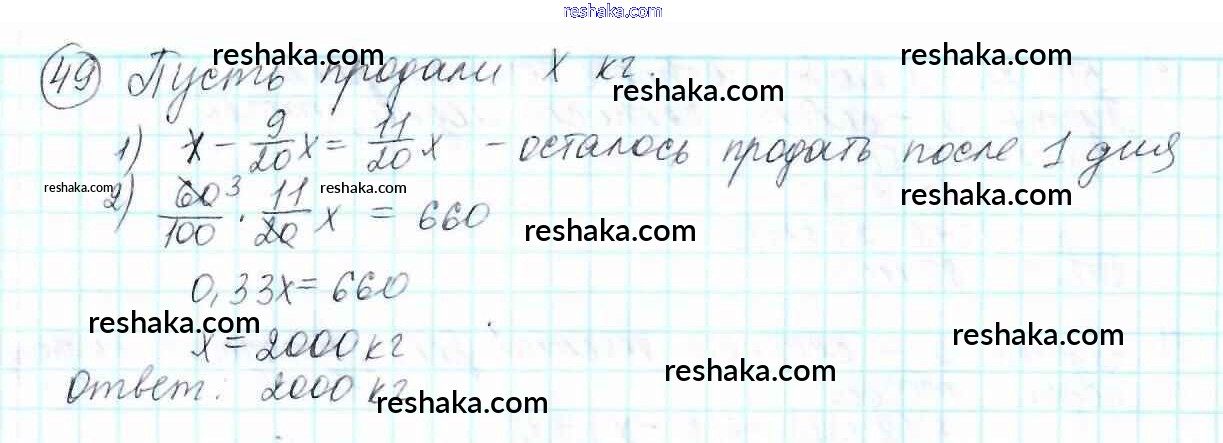 reshaka.com
49 Пусть продали x кг.
reshaka.com reshaka.com
reshaka.com
1) x - 9/20 x = 11/20 x - осталось продать после 1 дня
reshaka.com reshaka.com reshaka.com
2) 60 3/100 · 11/20 x = 660
reshaka.com
0,33x = 660
reshaka.com
x = 2000 кг
reshaka.com
reshaka.com
Ответ: 2000 кг
reshaka.com